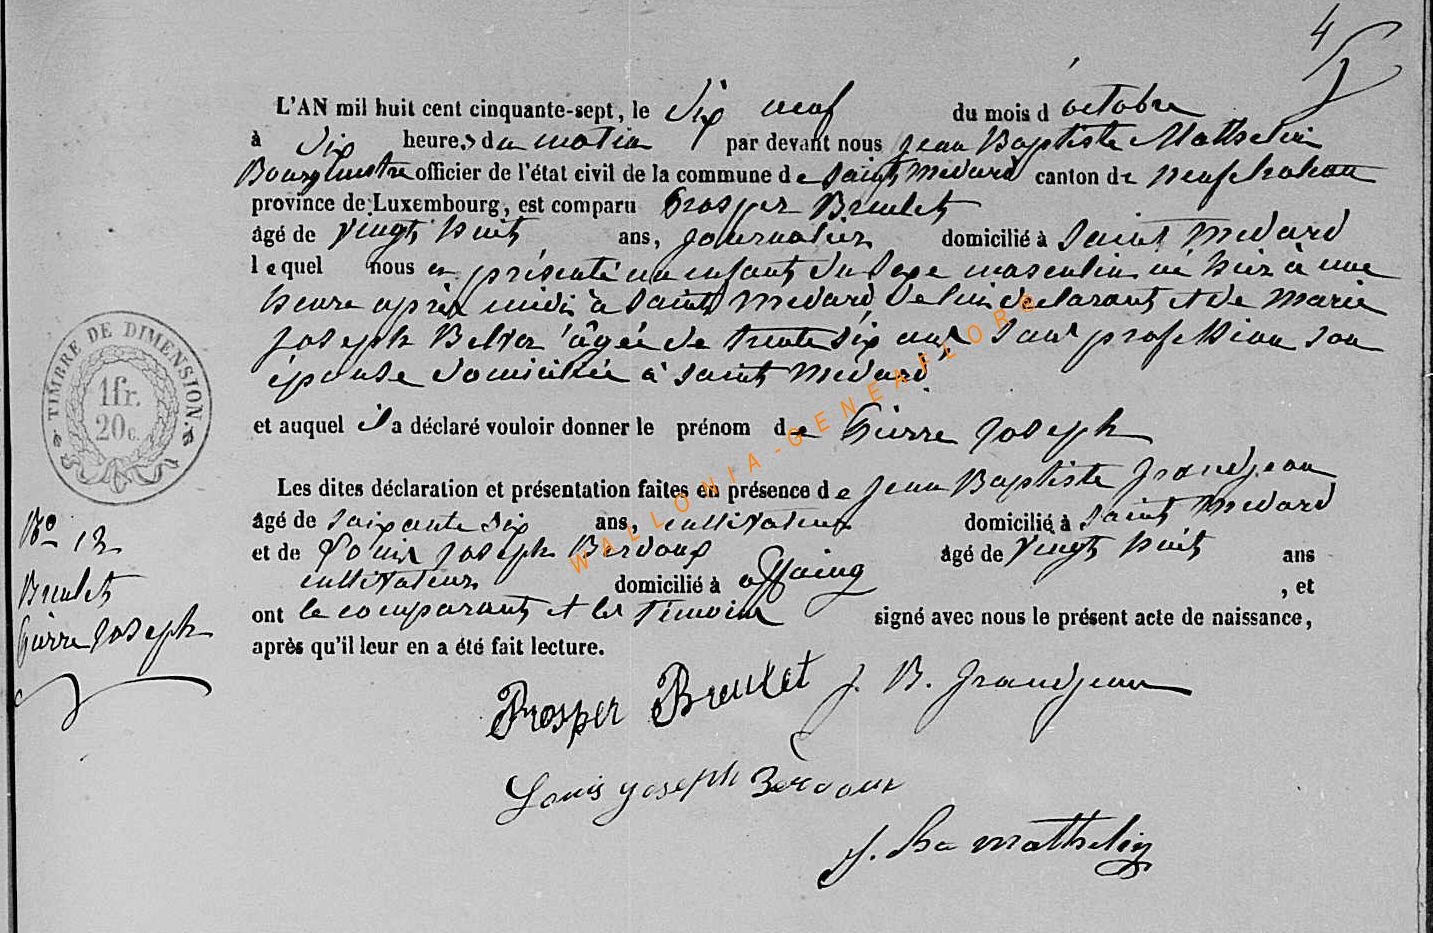 4
L'AN mil huit cent cinquante-sept, le dix neuf du mois d'octobre
à dix heures du matin par devant nous Jean Baptiste Mathelin
Bourgmestre officier de l'état civil de la commune de Saint Médard canton de neufchateau
province de Luxembourg, est comparu Prosper Breulet
âgé de vingt huit ans, journalier domicilié à Saint Médard
lequel nous a présenté un enfant du sexe masculin né hier à une
heure après midi à Saint Médard, de lui déclarant et de Marie
Joseph âgée de trente six ans sans profession son
épouse domiciliée à Saint Médard
et auquel il a déclaré vouloir donner le prénom de Pierre Joseph
Les dites déclaration et présentation faites en présence de Jean Baptiste Grandjean
âgé de soixante six ans, cultivateur domicilié à Saint Médard
et de Louis Joseph Berdoux âgé de vingt huit ans
cultivateur domicilié à offaing , et
ont le comparant et les témoins signé avec nous le présent acte de naissance,
après qu'il leur en a été fait lecture.
TIMBRE DE DIMENSION.
1fr.
20c.
No 12
Breulet
Pierre Joseph
Prosper Breulet J. B. Grandjean
Louis Joseph Berdoux
J. Ba Mathelin
WALLONIA-GENEAFLORE